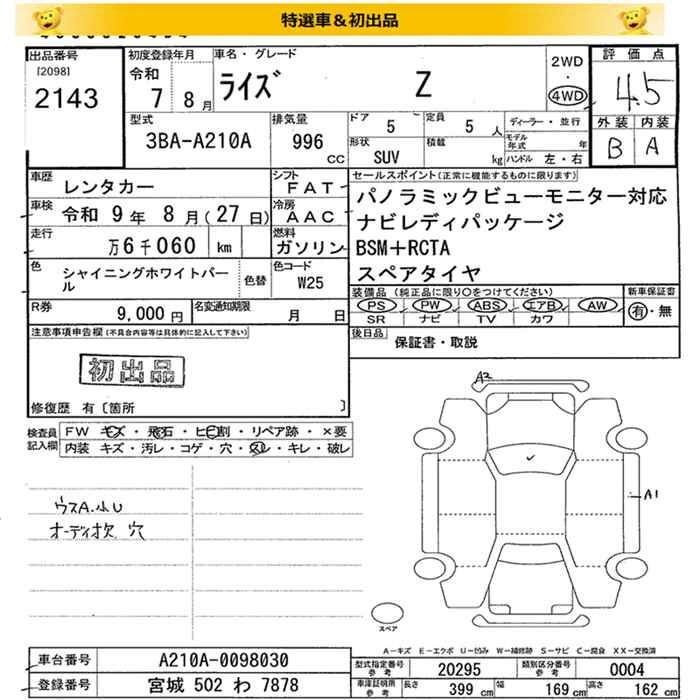 特選車＆初出品
出品番号
[2098]
2143
初度登録年月
令和
7 8月
車名・グレード
ライズ Z
2WD
・
4WD
評価点
4.5
外装 内装
B A
型式
3BA-A210A
排気量
996
CC
ドア 5
定員 5 人
形状 SUV
積載 kg
ディーラー・並行
モデル年式 年
ハンドル 左・右
車歴 レンタカー
シフト FAT
車検 令和 9年 8月(27日)
冷房 AAC
走行 万6千060 km
燃料 ガソリン
色 シャイニングホワイトパール
色替
色コード W25
R券 9,000円
名変通知期限 月 日
セールスポイント(正常に機能するものに限ります)
パノラミックビューモニター対応
ナビレディパッケージ
BSM＋RCTA
スペアタイヤ
装備品(純正品に限り○をつけてください)
PS PW ABS エアB AW
SR ナビ TV カワ
新車保証書
有・無
後日品
保証書・取説
注意事項申告欄(不具合内容等は具体的に記入して下さい)
初出品
修復歴 有〔箇所 〕
検査員記入欄
FW キズ・飛石・ヒビ割・リペア跡・×要
内装 キズ・汚レ・コゲ・穴・スレ・キレ・破レ
ウスA.小U
オーディオ欠 穴
A2
A1
スペア
A－キズ E－エクボ U－凹み W－補修跡 S－サビ C－腐食 XX－交換済
車台番号 A210A-0098030
登録番号 宮城 502 わ 7878
型式指定番号 参考 20295
類別区分番号 参考 0004
車庫証明用 参考 長さ 399 cm 幅 169 cm 高さ 162 cm